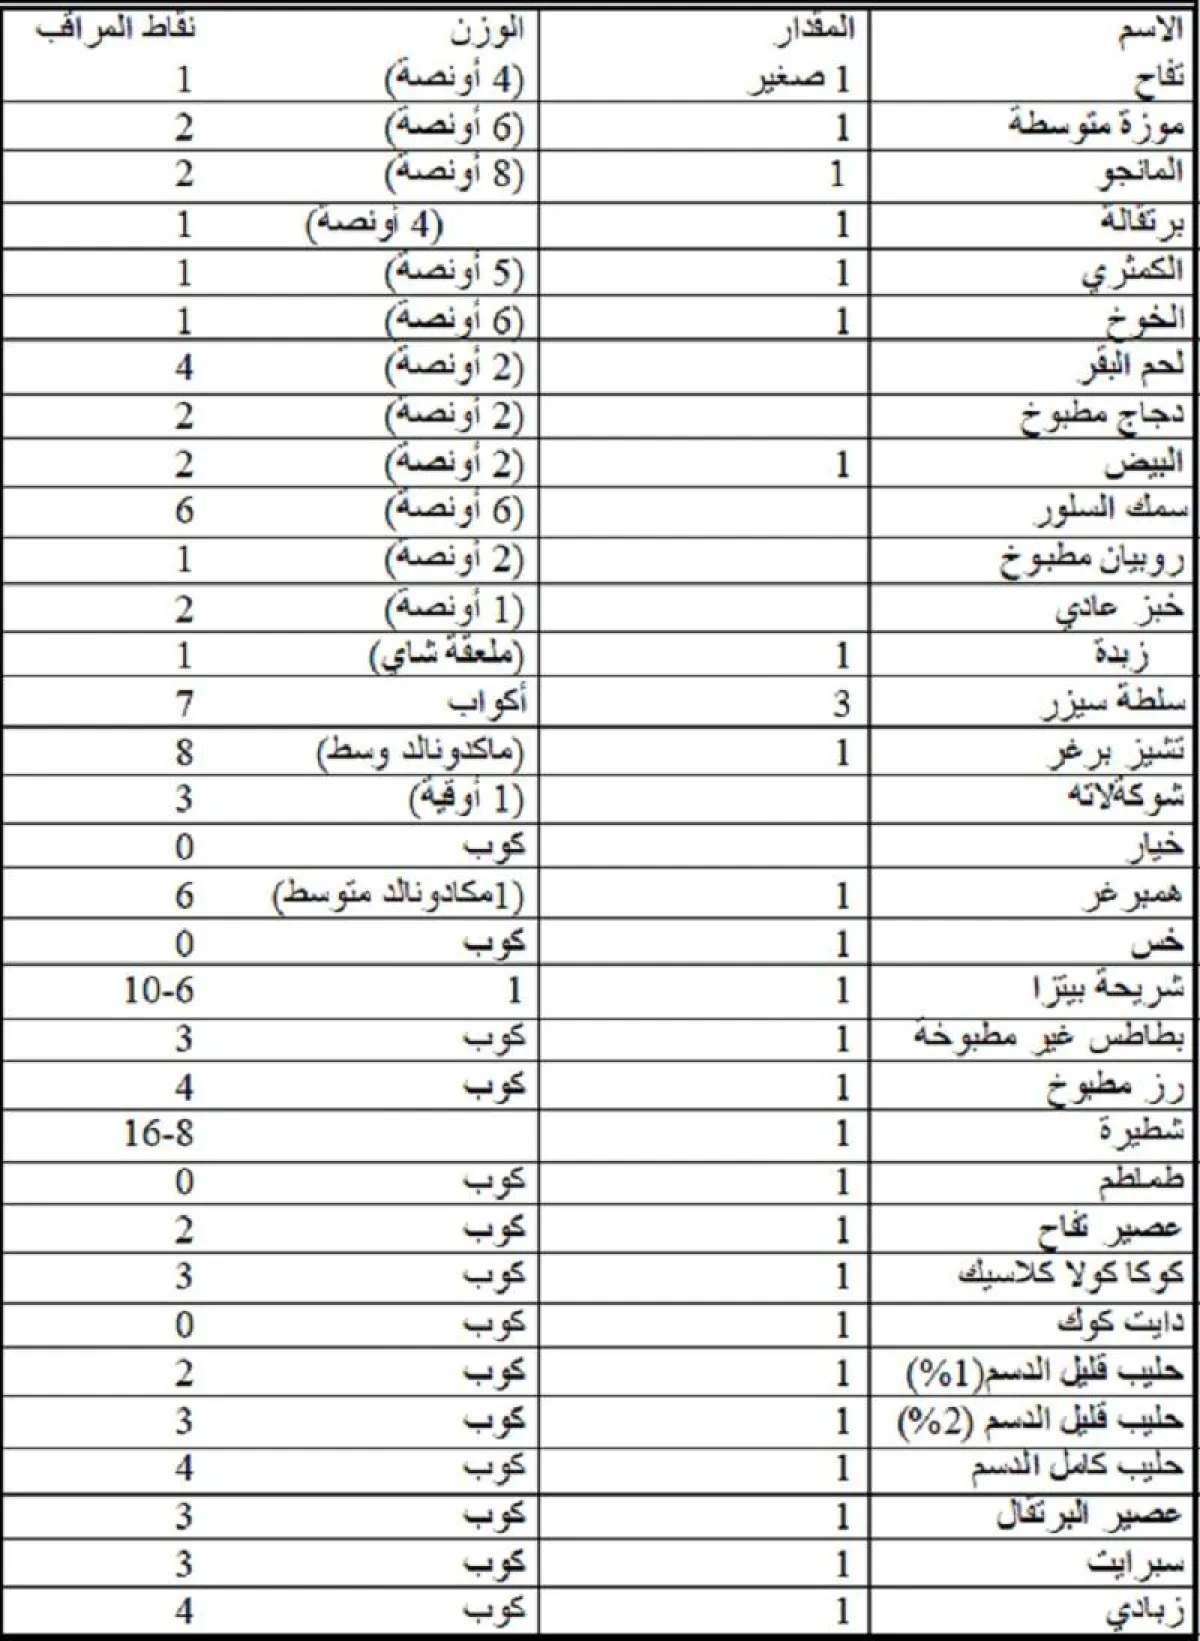 الاسم المقدار الوزن نقاط المراقب
تفاح 1 صغير (4 أونصة) 1
موزة متوسطة 1 (6 أونصة) 2
المانجو 1 (8 أونصة) 2
برتقالة 1 (4 أونصة) 1
الكمثري 1 (5 أونصة) 1
الخوخ 1 (6 أونصة) 1
لحم البقر (2 أونصة) 4
دجاج مطبوخ (2 أونصة) 2
البيض 1 (2 أونصة) 2
سمك السلور (6 أونصة) 6
روبيان مطبوخ (2 أونصة) 1
خبز عادي (1 أونصة) 2
زبدة 1 (ملعقة شاي) 1
سلطة سيزر 3 أكواب 7
تشيز برغر 1 (ماكدونالد وسط) 8
شوكةلاته (1 أوقية) 3
خيار كوب 0
همبرغر 1 (1مكادونالد متوسط) 6
خس 1 كوب 0
شريحة بيتزا 1 1 10-6
بطاطس غير مطبوخة 1 كوب 3
رز مطبوخ 1 كوب 4
شطيرة 1 16-8
طماطم 1 كوب 0
عصير تفاح 1 كوب 2
كوكا كولا كلاسيك 1 كوب 3
دايت كوك 1 كوب 0
حليب قليل الدسم(1%) 1 كوب 2
حليب قليل الدسم (2%) 1 كوب 3
حليب كامل الدسم 1 كوب 4
عصير البرتقال 1 كوب 3
سبرايت 1 كوب 3
زبادي 1 كوب 4